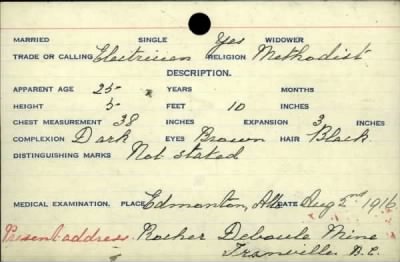 MARRIED SINGLE Yes WIDOWER
TRADE OR CALLING Electrician RELIGION Methodist
DESCRIPTION.
APPARENT AGE 25 YEARS MONTHS
HEIGHT 5 FEET 10 INCHES
CHEST MEASUREMENT 38 INCHES EXPANSION 3 INCHES
COMPLEXION Dark EYES Brown HAIR Black
DISTINGUISHING MARKS Not stated
MEDICAL EXAMINATION. PLACE Edmonton, Alta DATE Aug 2nd 1916
Present address. Rocher Deboule Mine
Tranville B.C.